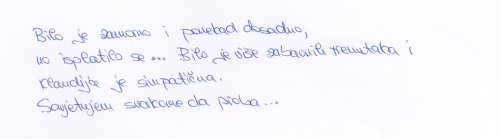 Bilo je zamorno i ponekad dosadno,
no isplatilo se... Bilo je više zabavnih trenutaka i
Klaudija je simpatična.
Savjetujem svakome da proba...